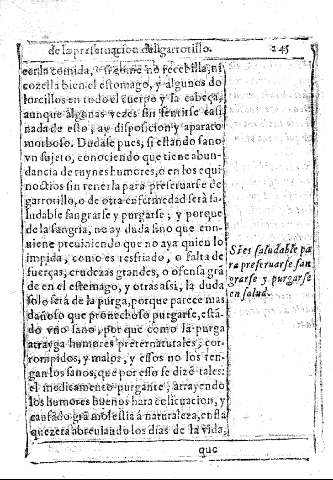 de la preseruacion del garrotillo. 245
con la comida, si come no recebilla, ni
cozella bien el estomago, y algunos do
lorcillos en todo el cuerpo y la cabeça,
aunque algunas vezes sin sentirse casi
nada de esto, ay disposicion y aparato
morboso. Dudase pues, si estando sano
vn sujeto, conociendo que tiene abun-
dancia de ruynes humores, o en los equi
noctios sin tenerla para preseruarse de
garrotillo, o de otra enfermedad será sa-
ludable sangrarse y purgarse; y porque
de la sangria, no ay duda sino que con-
uiene preuiniendo que no aya quien lo
impida, como es resfriado, o falta de
fuerças, crudezas grandes, o ofensa grã
de en el estomago, y otras assi, la duda
solo será de la purga, porque parece mas
dañoso que prouechoso purgarse, està-
do vno sano, por que como la purga
atrayga humores preternaturales, cor-
rompidos, y malos, y essos no los ten-
gan los sanos, que por esso se dizẽ tales:
el medicamento purgante, atrayendo
los humores buenos hara colicuacion, y
causado grã molestia á naturaleza, enfla
quezera abreuiando los dias de la vida,
que
Si es saludable pa
ra preseruarse san
grarse y purgarse
en salud.